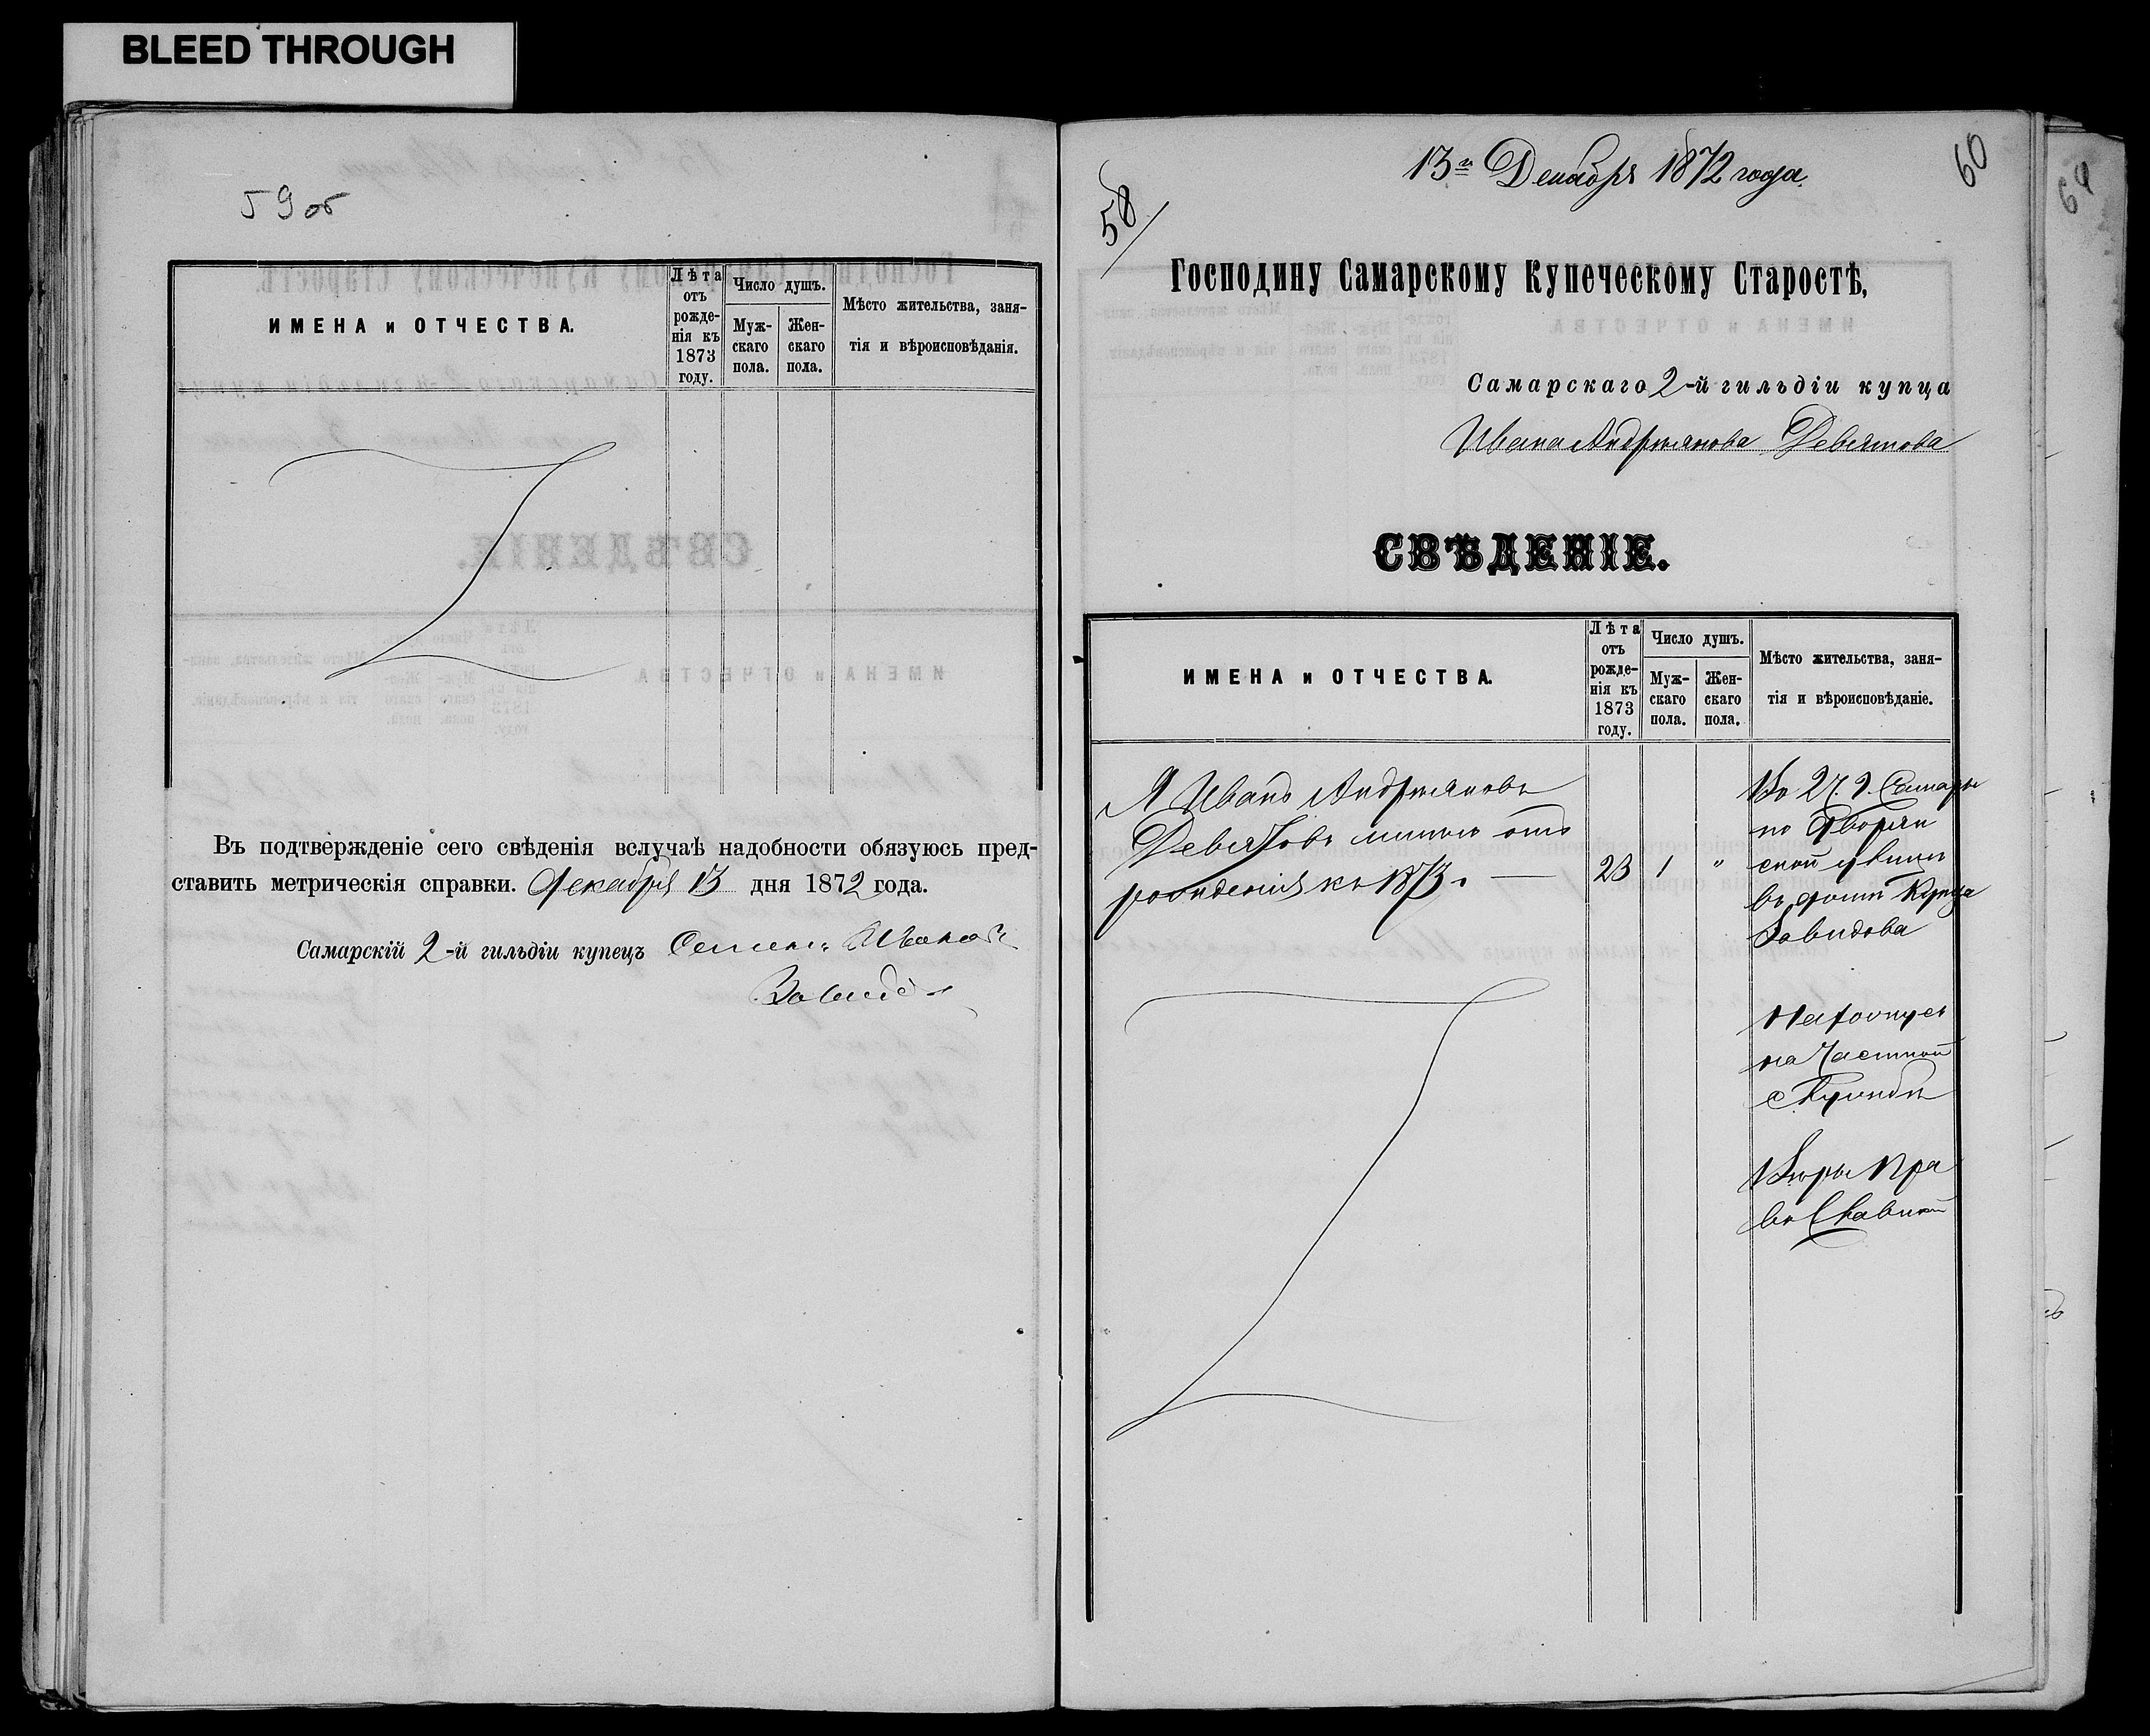 BLEED THROUGH
59 об
ИМЕНА и ОТЧЕСТВА.
Лѣта
отъ
рожде-
нія къ
1873
году.
Число душъ.
Муж-
скаго
пола.
Жен-
скаго
пола.
Мѣсто жительства, заня-
тія и вѣроисповѣданія.
Въ подтвержденіе сего свѣденія вслучаѣ надобности обязуюсь пред-
ставить метрическія справки. Декабря 13 дня 1872 года.
Самарскій 2-й гильдіи купецъ Семенъ Иванов
60
64
13го Декабря 1872 года.
58
Господину Самарскому Купеческому Старостѣ,
Самарскаго 2-й гильдіи купца
Ивана Андриянова Девятова
СВѢДЕНІЕ.
ИМЕНА и ОТЧЕСТВА.
Лѣта
отъ
рожде-
нія къ
1873
году.
Число душъ.
Муж-
скаго
пола.
Жен-
скаго
пола.
Мѣсто жительства, заня-
тія и вѣроисповѣданіе.
Я Иванъ Андрияновъ
Девятовъ отъ
рожденія къ 1873.
23 1 "
Самары
по Дворян
ской улицы
въ доми Купца
на Частной
Вѣры Пра